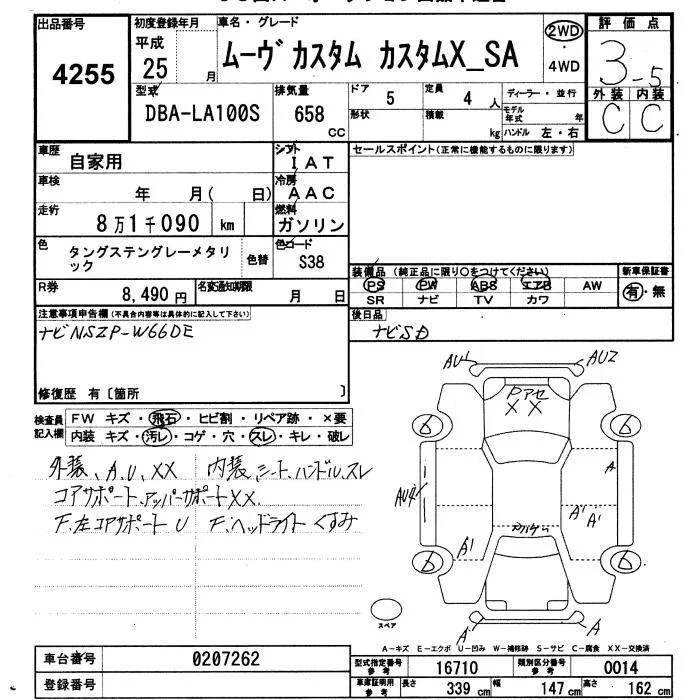 出品番号
4255
初度登録年月
平成
25 月
車名・グレード
ムーヴ カスタム カスタムX_SA
2WD
4WD
評価点
3-5
外装 内装
C C
型式
DBA-LA100S
排気量
658
CC
ドア
5
定員
4 人
形状
積載
kg
ディーラー・並行
モデル年式 年
ハンドル 左・右
車歴
自家用
シフト
I AT
車検
年 月( 日)
冷房
A AC
走行
8万1千090 km
燃料
ガソリン
色
タングステングレーメタリック
色替
色コード
S38
R券
8,490 円
名変通知期限
月 日
セールスポイント(正常に機能するものに限ります)
装備品 (純正品に限り○をつけてください)
PS PW ABS エアB AW
SR ナビ TV カワ
新車保証書
有・無
後日品
ナビSD
注意事項申告欄(不具合内容等は具体的に記入して下さい)
ナビNSZP-W66DE
修復歴 有〔箇所 〕
検査員記入欄
FW キズ・飛石・ヒビ割・リペア跡・×要
内装 キズ・汚レ・コゲ・穴・スレ・キレ・破レ
外装、A.U.XX 内装、シート.ハンドル.スレ
コアサポート.アッパーサポートXX.
F.左コアサポート U F.ヘッドライト くすみ
AU1 AU2
X X
6 6
A
AU4
A' A'
A'
6 6
A' A
スペア
A-キズ E-エクボ U-凹み W-補修跡 S-サビ C-腐食 XX-交換済
車台番号
0207262
登録番号
型式指定番号 参考
16710
類別区分番号 参考
0014
車庫証明用 参考
長さ 339 cm 幅 147 cm 高さ 162 cm